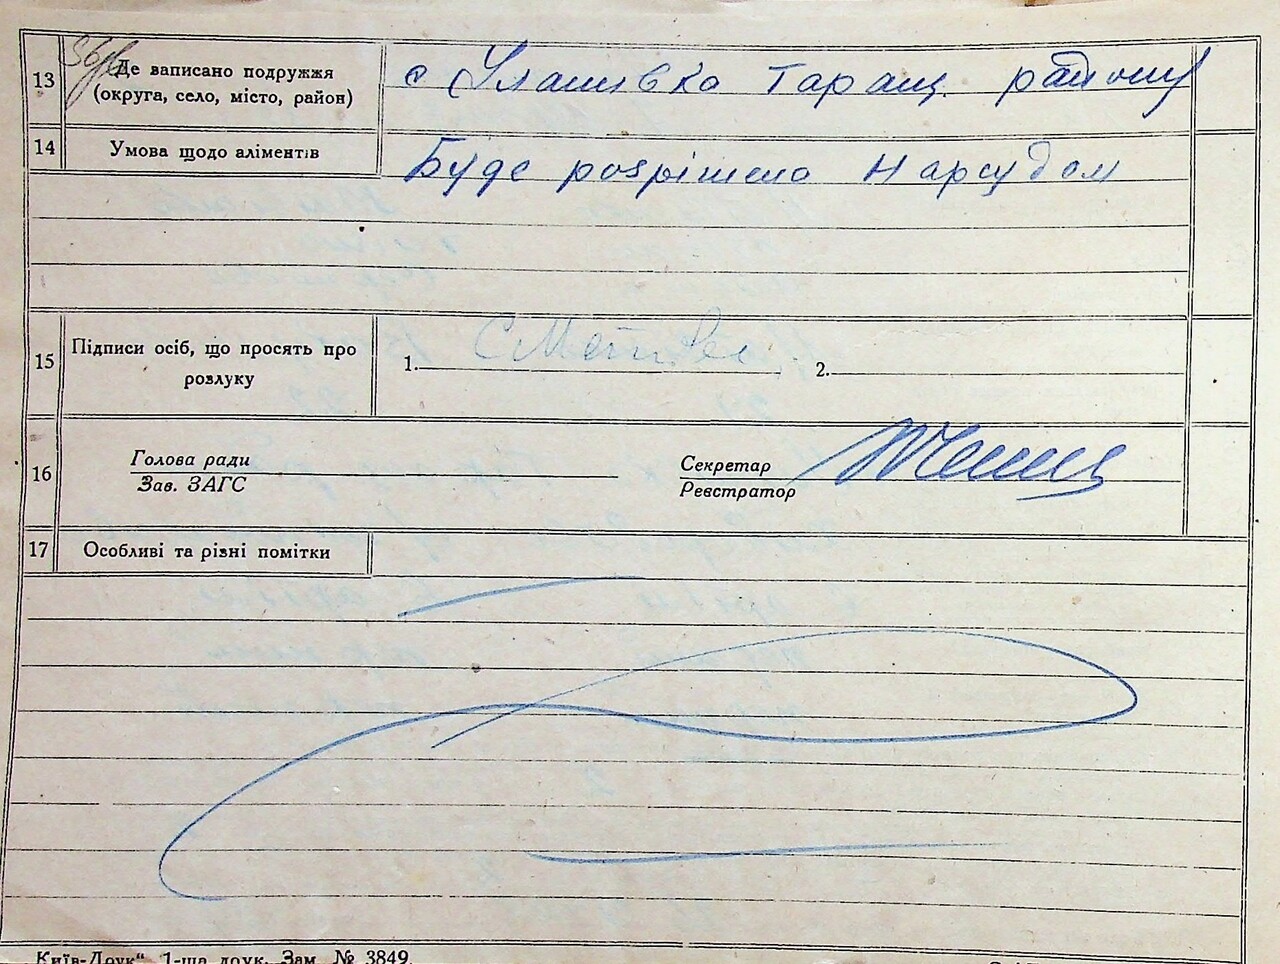 13 Де записано подружжя
(округа, село, місто, район)
с Улашівка Таращ. району
14 Умова щодо аліментів
Буде розрішено Нарсудом
15 Підписи осіб, що просять про
розлуку
1. 2.
16 Голова ради
Зав. ЗАГС
Секретар
Реєстратор
17 Особливі та різні помітки
Київ-Друк“ 1-ша друк. Зам. № 3849.